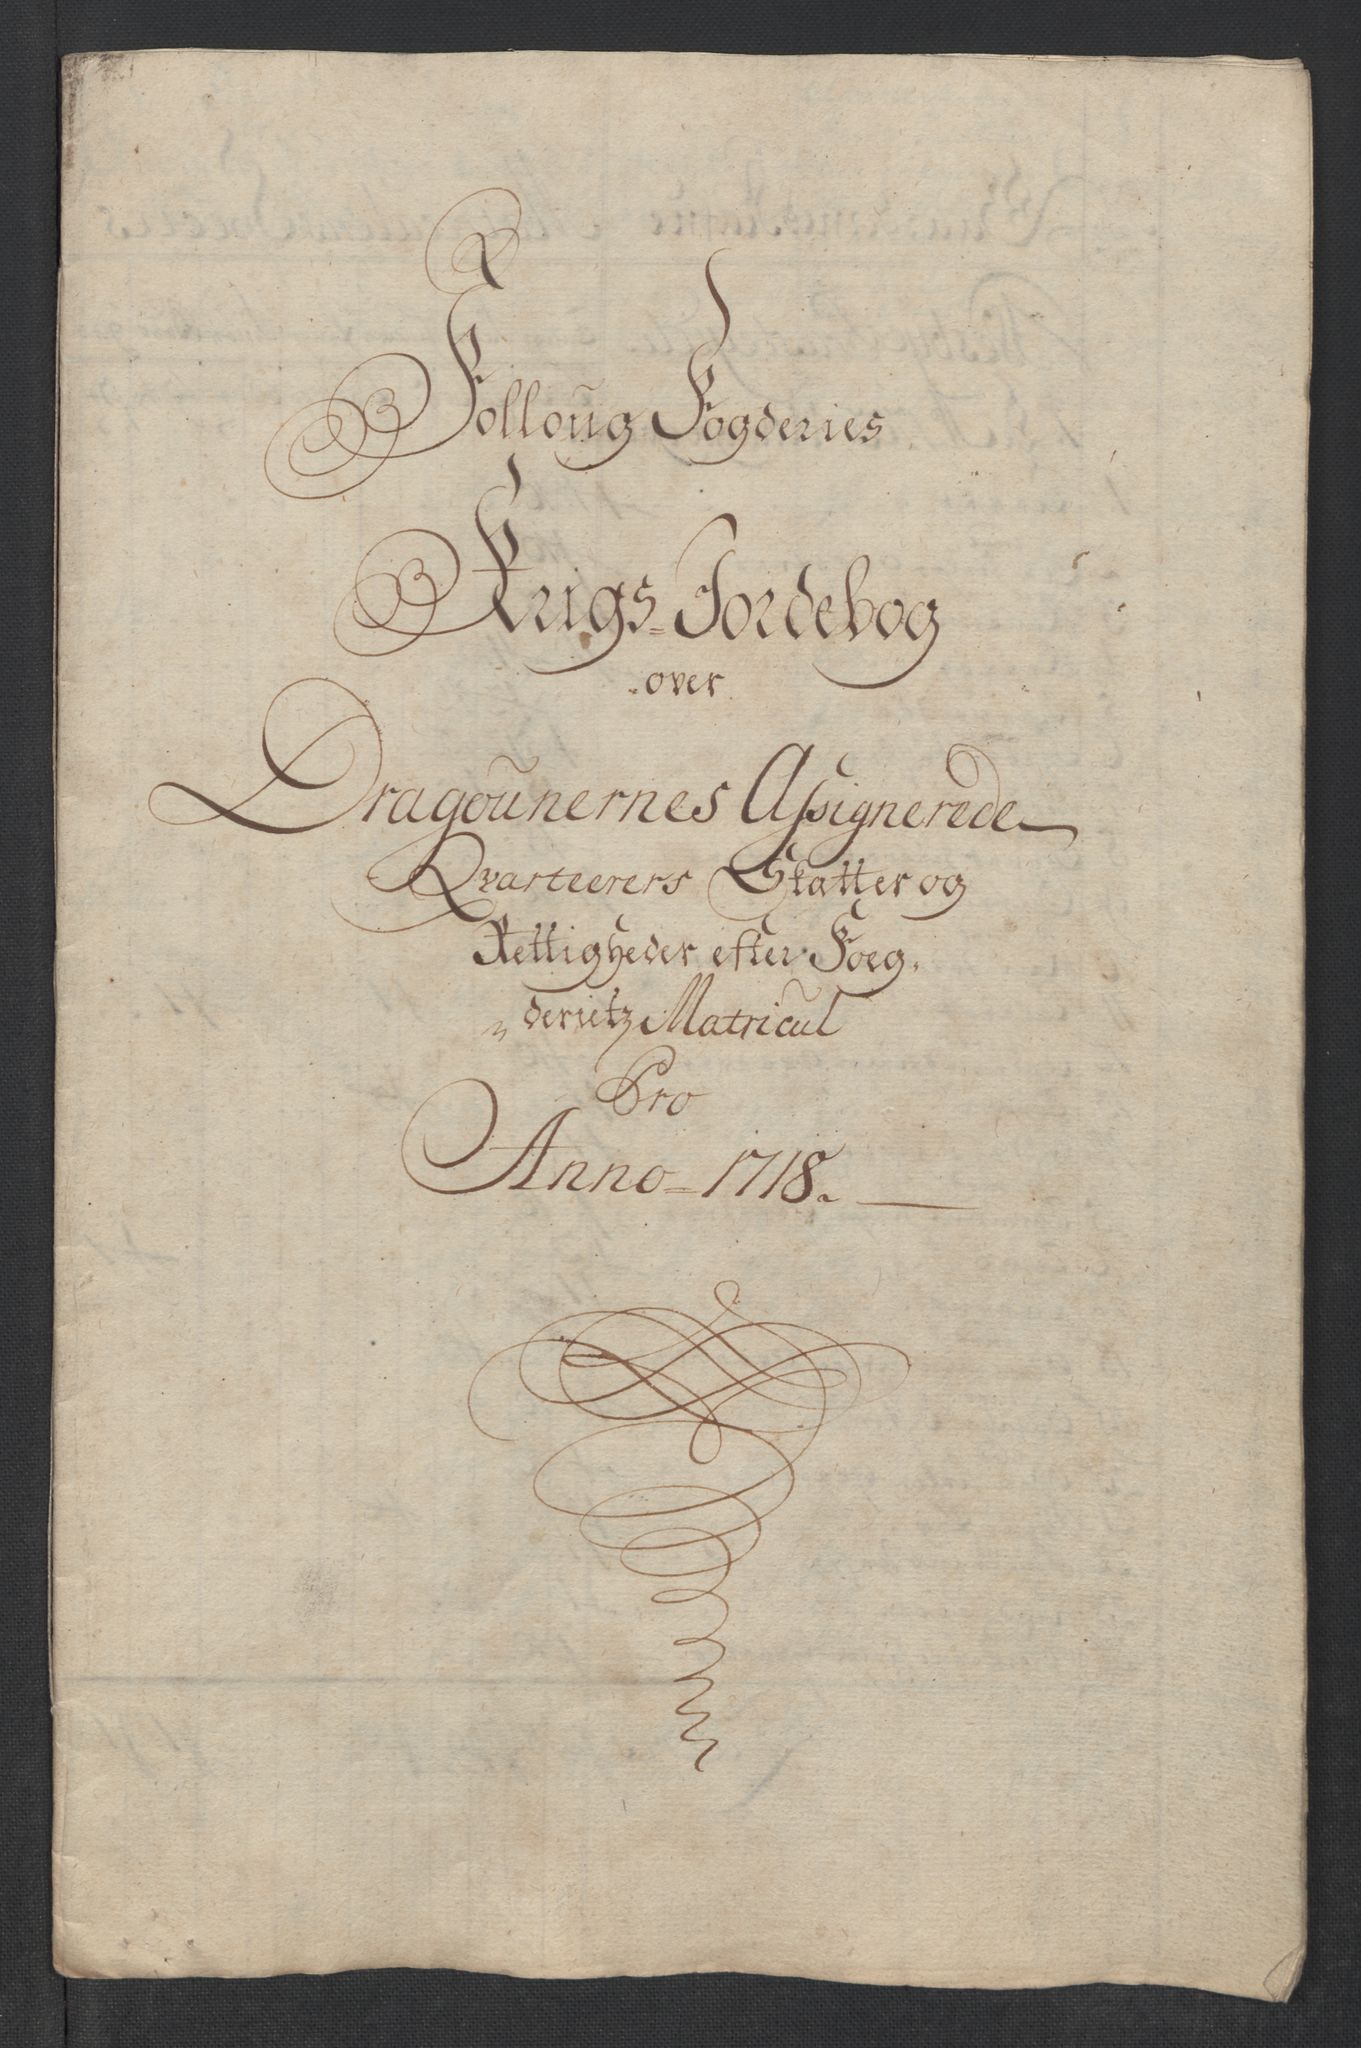 Folloug Fogderies
Krigs=Jordebog
over
Dragounernes Assignerede
Qvarteerers Skatter og
Rettigheder efter Foeg.
derietz Matricul
Pro
Anno=1718.